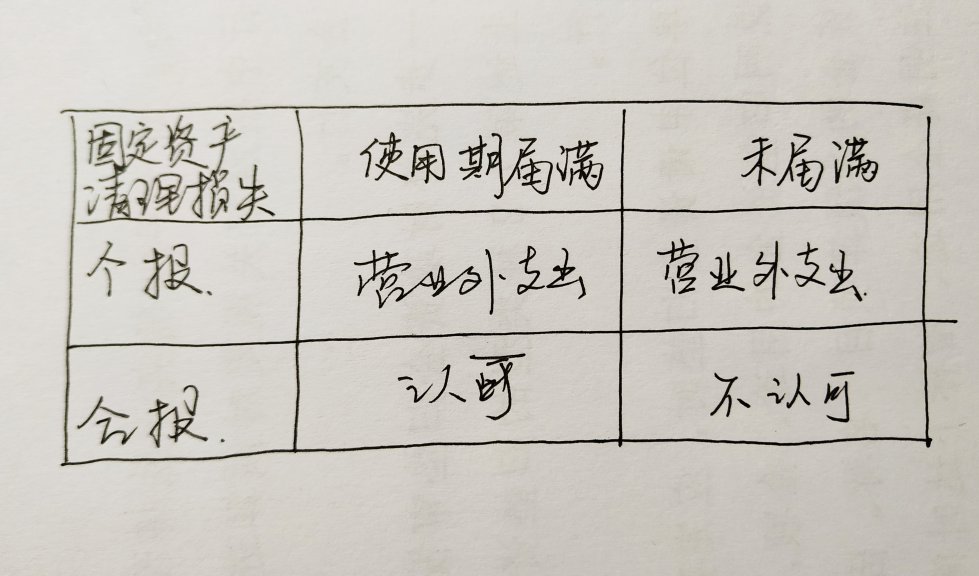 固定资产
清理损失
使用期届满
未届满
个报.
营业外支出
营业外支出.
合报.
认可
不认可